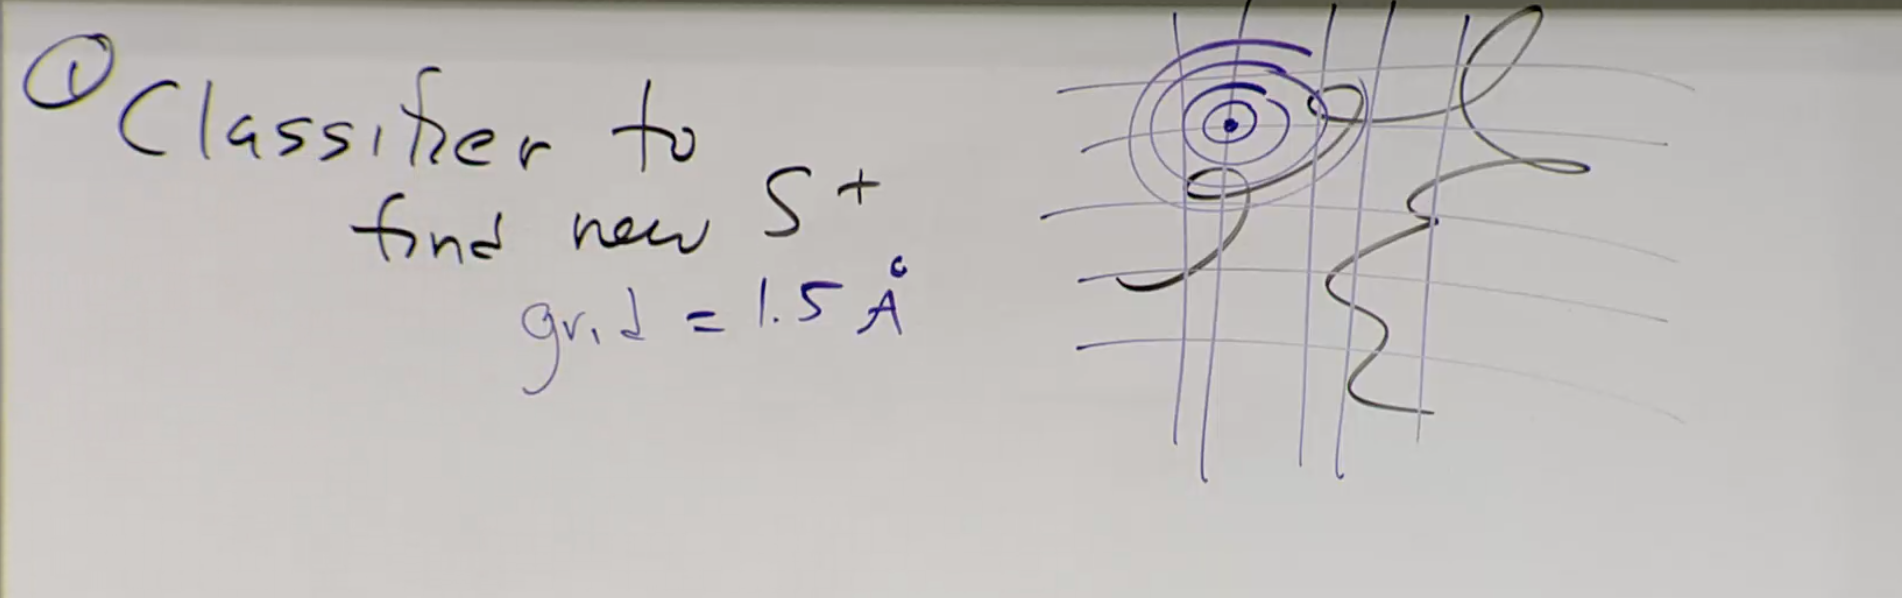 ① Classifier to
find new S+
grid = 1.5 Å